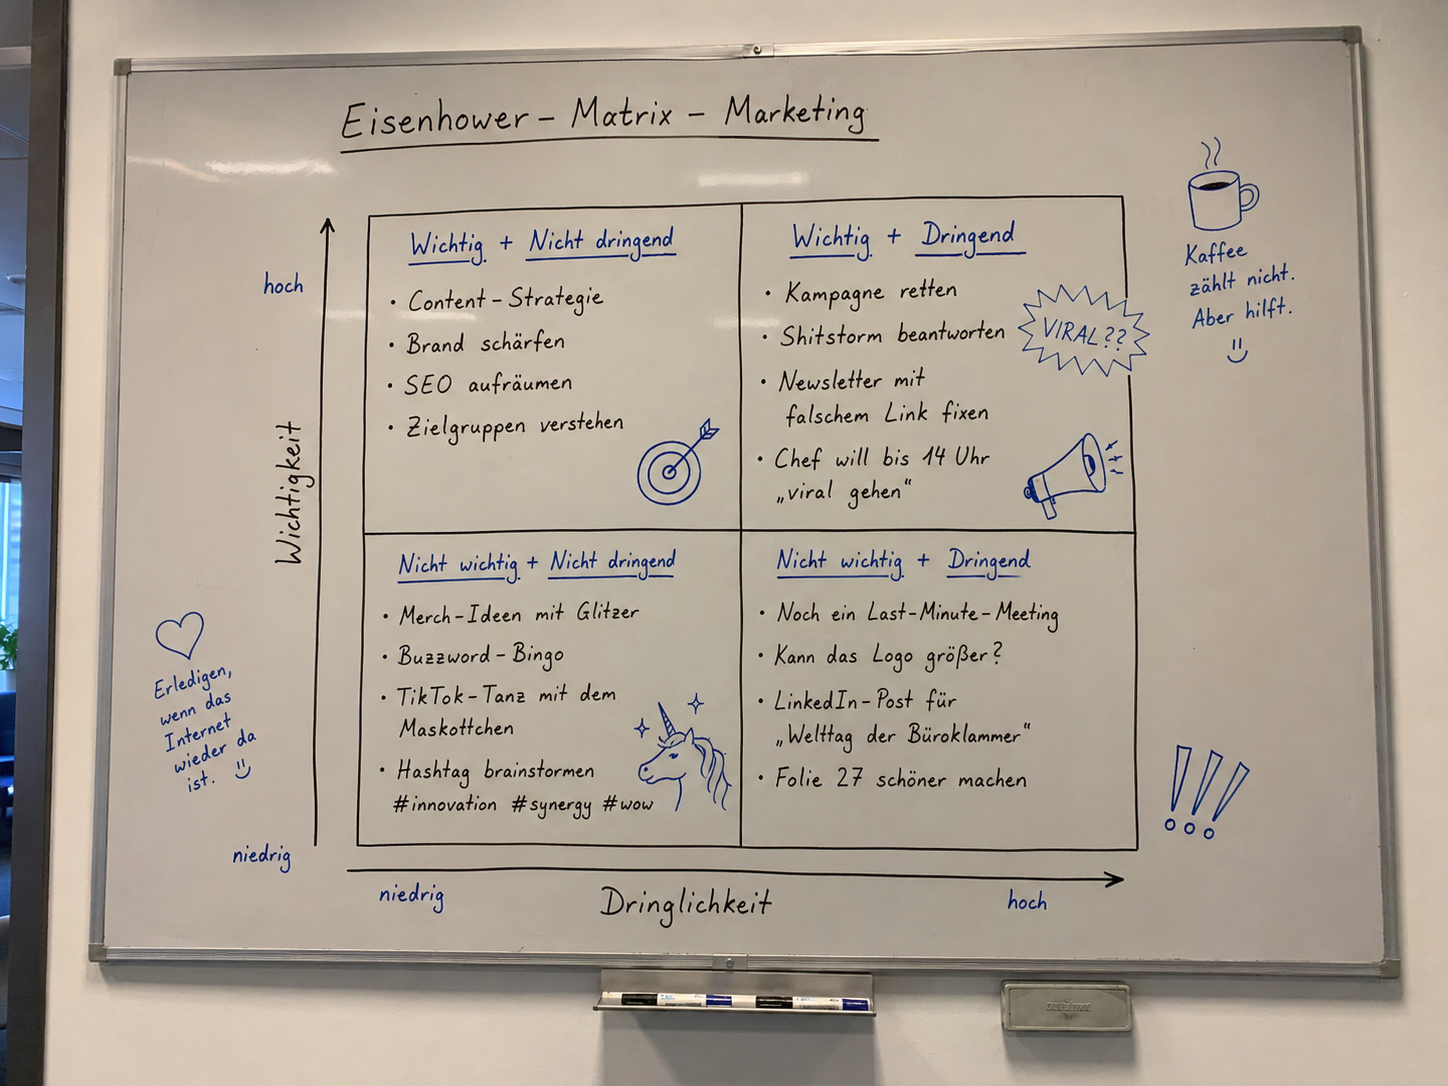 Eisenhower – Matrix – Marketing
Wichtig + Nicht dringend
• Content – Strategie
• Brand schärfen
• SEO aufräumen
• Zielgruppen verstehen
Wichtig + Dringend
• Kampagne retten
• Shitstorm beantworten
• Newsletter mit
falschem Link fixen
• Chef will bis 14 Uhr
„viral gehen“
VIRAL??
Kaffee
zählt nicht.
Aber hilft.
hoch
Wichtigkeit
niedrig
Nicht wichtig + Nicht dringend
• Merch-Ideen mit Glitzer
• Buzzword-Bingo
• TikTok-Tanz mit dem
Maskottchen
• Hashtag brainstormen
#innovation #synergy #wow
Nicht wichtig + Dringend
• Noch ein Last-Minute-Meeting
• Kann das Logo größer?
• LinkedIn-Post für
„Welttag der Büroklammer“
• Folie 27 schöner machen
Erledigen,
wenn das
Internet
wieder da
ist.
!!!
niedrig
Dringlichkeit
hoch